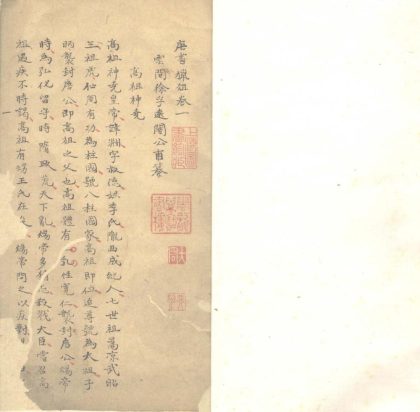 唐書獵俎卷一
雲間徐孚遠闇公甫纂
高祖神堯
高祖神堯皇帝諱淵字叔德姓李氏隴西成紀人七世祖暠涼武昭
王祖虎佐周有功為柱國號八柱國家高祖即位追尊號為太祖子
昞襲封唐公即高祖之父也高祖體有 乳性寬仁襲封唐公煬帝
時為弘化留守時隋政荒天下亂煬帝多 殺戮大臣嘗召高
祖遇疾不時謁高祖有甥王氏在 煬帝問之以疾對